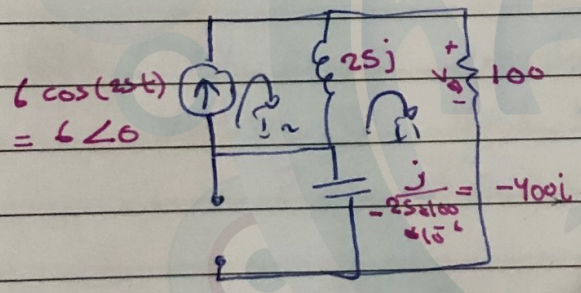 6 cos(25t)
= 6∠0
I₂
25j
I₁
+
V₀
-
100
- j / 25×100 ×10⁻⁶ = -400i